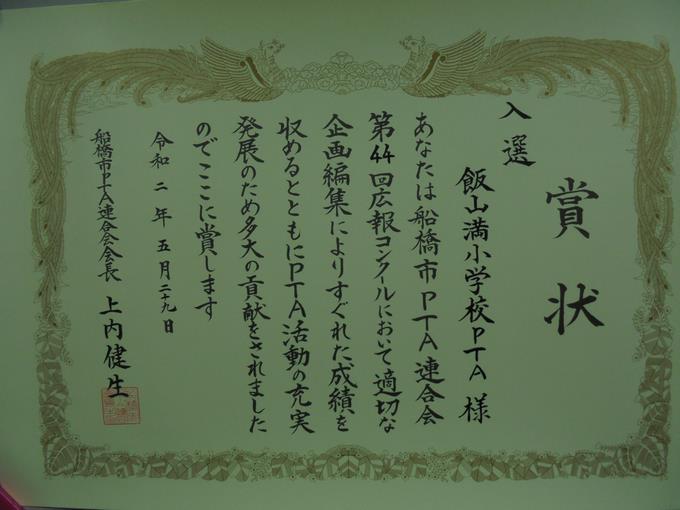 賞状
入選
飯山満小学校PTA様
あなたは船橋市PTA連合会
第44回広報コンクールにおいて適切な
企画編集によりすぐれた成績を
収めるとともにPTA活動の充実
発展のため多大の貢献をされました
のでここに賞します
令和二年五月二十九日
船橋市PTA連合会会長 上内健生